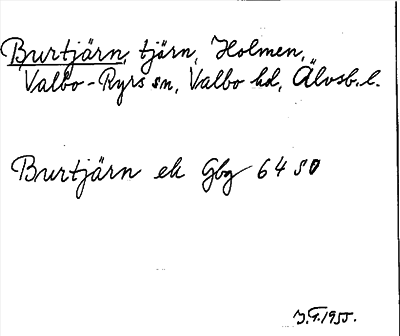 Burtjärn, tjärn, Holmen,
Valbo-Ryrs sn, Valbo hd, Älvsb. l.
Burtjärn ek Gbg 64 SO
J.T. 1955.